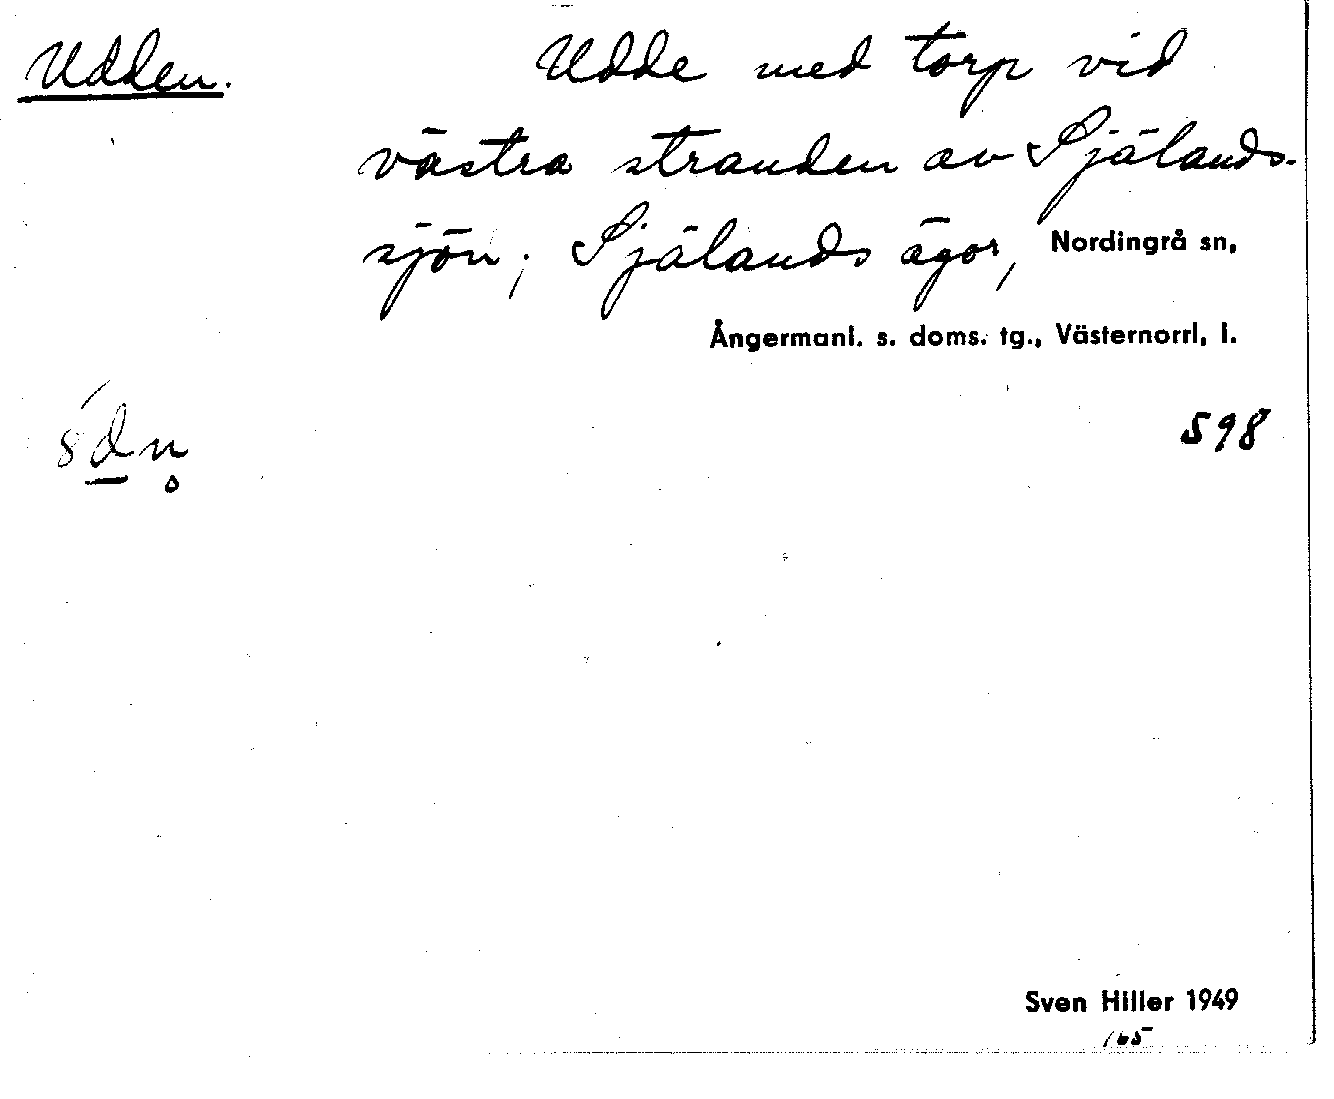 Udden. Udde med torp vid
västra stranden av Själands-
sjön; Själands ägor, Nordingrå sn,
Ångermanl. s. doms. tg., Västernorrl, l.
598
Sven Hiller 1949
165